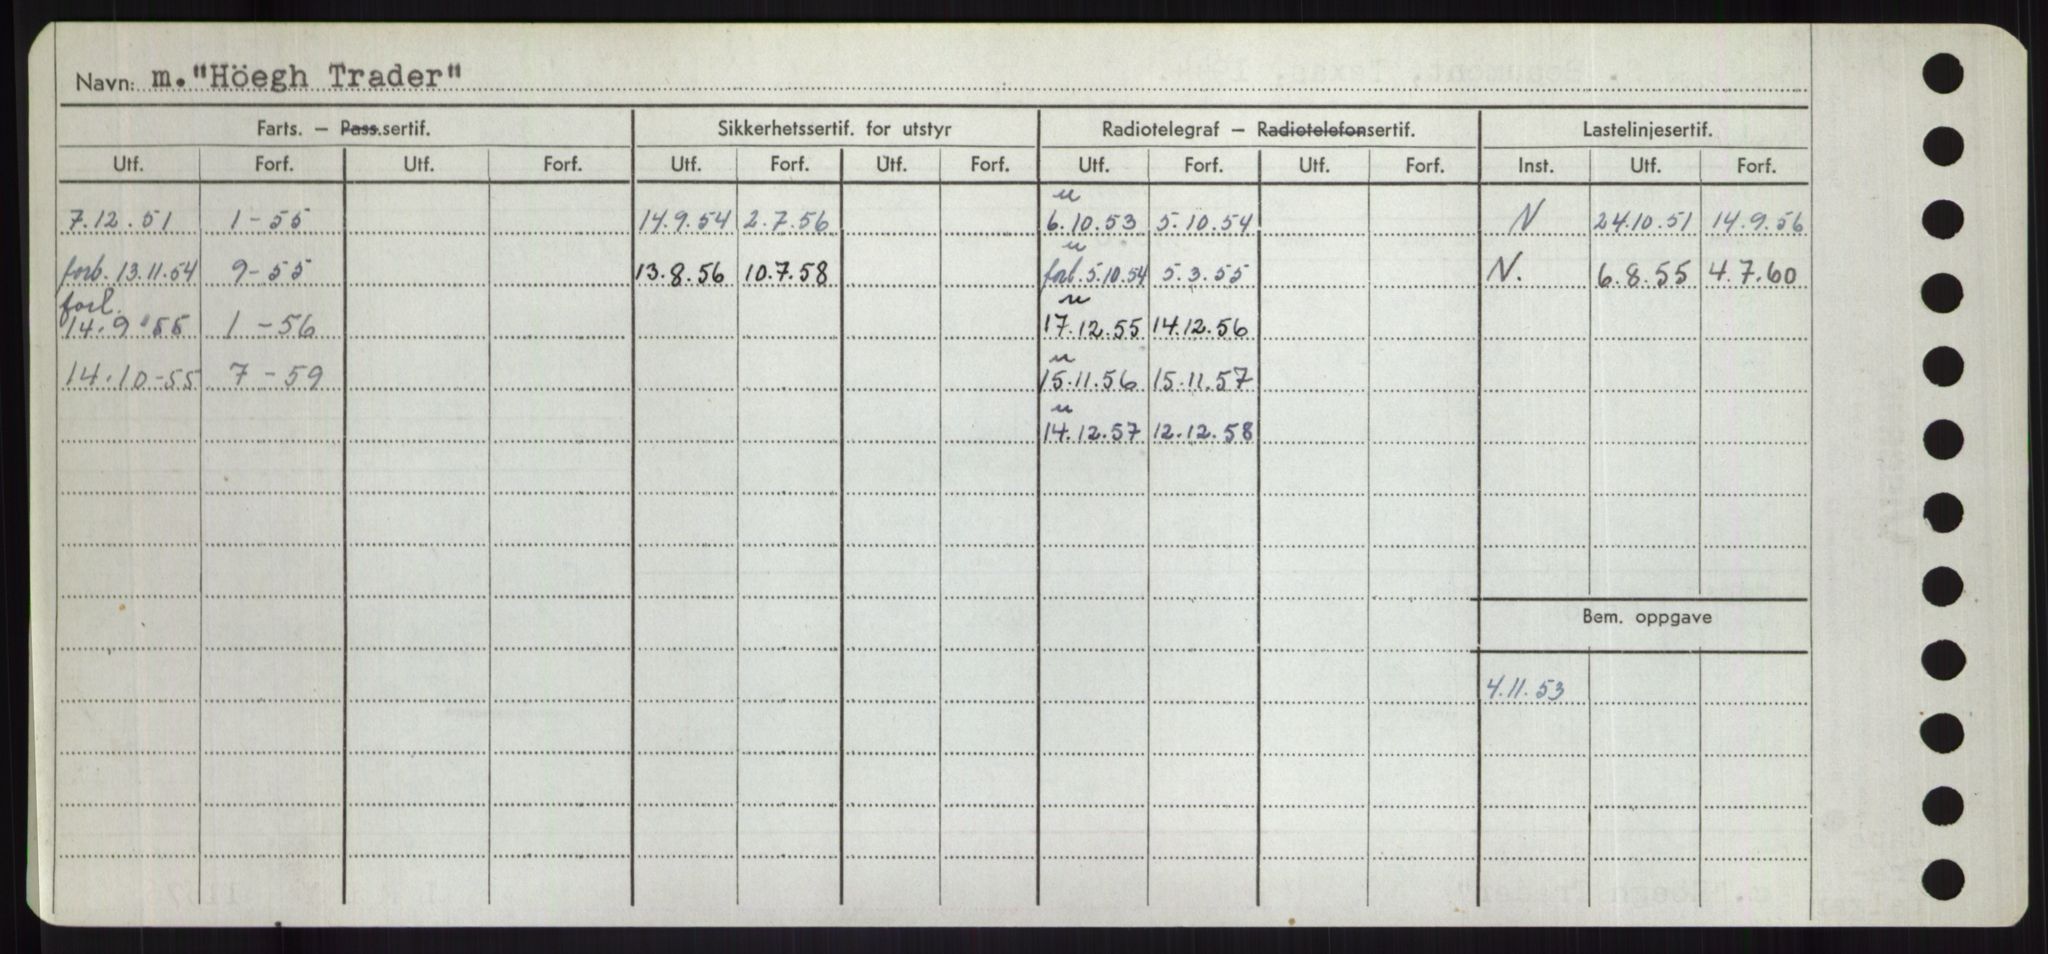 Navn: m."Höegh Trader"
Farts. – Pass.sertif. Sikkerhetssertif. for utstyr Radiotelegraf – Radiotelefonsertif. Lastelinjesertif.
Utf. Forf. Utf. Forf. Utf. Forf. Utf. Forf. Utf. Forf. Utf. Forf. Inst. Utf. Forf.
u
7.12.51 1-55 14.9.54 2.7.56 6.10.53 5.10.54 N 24.10.51 14.9.56
u
forb. 13.11.54 9-55 13.8.56 10.7.58 forl. 5.10.54 5.3.55 N. 6.8.55 4.7.60
forl. u
14.9.55 1-56 17.12.55 14.12.56
u
14.10-55 7-59 15.11.56 15.11.57
u
14.12.57 12.12.58
Bem. oppgave
4.11.53